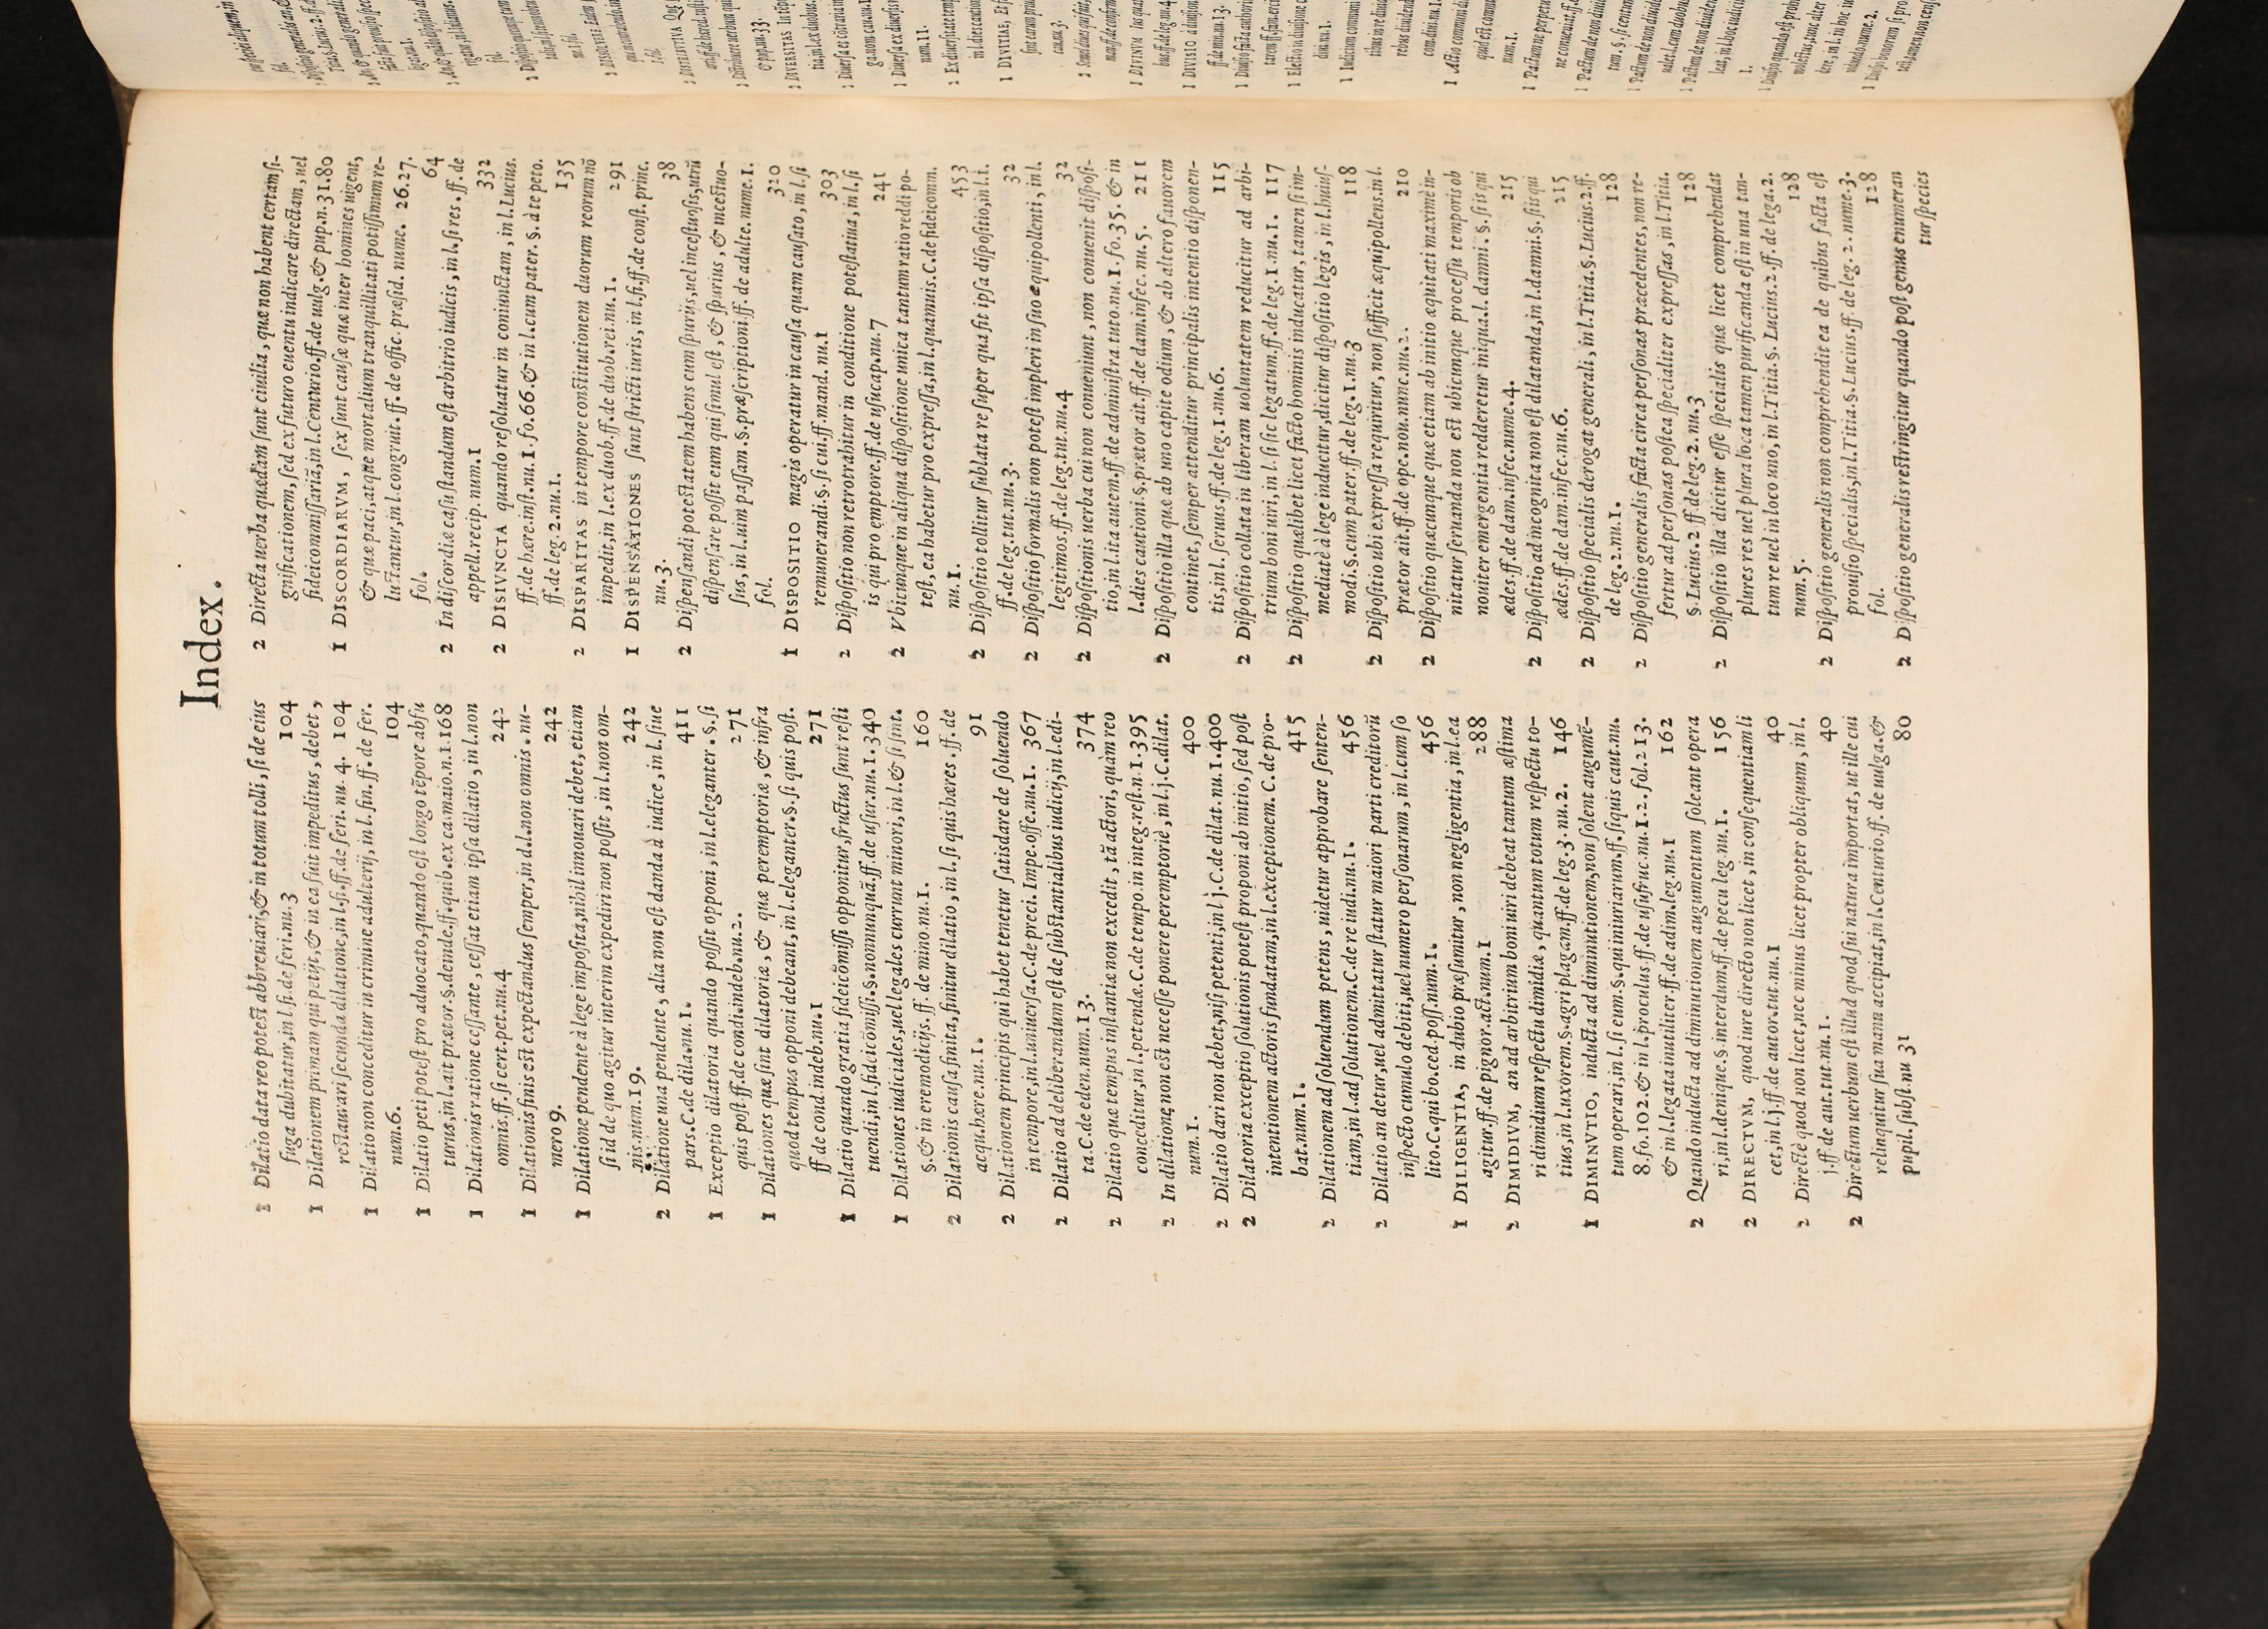 Index.
1 Dilatio data reo poteſt abbreuiari, & in totum tolli, ſi de eius
fuga dubitatur, in l. ſi. de feri. nu. 3 104
1 Dilationem primam qui petijt, & in ea fuit impeditus, debet,
reſtaurari ſecunda dilatione, in l. ſi. ff. de feri. nu. 4. 104
1 Dilatio non conceditur in crimine adulterij, in l. fin. ff. de fer.
num. 6. 104
1 Dilatio peti poteſt pro aduocato, quando eſt longo tēpore abſu
turus, in l. ait prætor. §. deinde. ff. quib. ex ca. maio. n. 1. 168
1 Dilationis ratione ceſſante, ceſſat etiam ipſa dilatio, in l. non
omnis. ff. ſi cert. pet. nu. 4 242
1 Dilationis finis eſt expectandus ſemper, in d. l. non omnis. nu-
mero 9. 242
1 Dilatione pendente à lege impoſita, nihil innouari debet, etiam
ſi id de quo agitur interim expediri non poſſit, in l. non om-
nis. num. 19. 242
2 Dilatione una pendente, alia non eſt danda à iudice, in l. ſiue
pars. C. de dila. nu. 1. 411
1 Exceptio dilatoria quando poſſit opponi, in l. eleganter. §. ſi
quis poſt. ff. de condi. indeb. nu. 2. 271
1 Dilationes quæ ſint dilatoriæ, & quæ peremptoriæ, & infra
quod tempus opponi debeant, in l. eleganter. §. ſi quis poſt.
ff de cond. indeb. nu. 1 271
1 Dilatio quando gratia fideicōmiſſi opponitur, fructus ſunt reſti
tuendi, in l. fideicōmiſſi. §. nonnunquā. ff. de uſur. nu. 1. 340
1 Dilationes iudiciales, uel legales currunt minori, in l. & ſi ſint.
§. & in eremodicijs. ff. de mino. nu. 1. 160
2 Dilationis cauſa finita, finitur dilatio, in l. ſi quis hæres. ff. de
acqu. hære. nu. 1. 91
2 Dilationem principis qui habet tenetur ſatisdare de ſoluendo
in tempore, in l. uniuerſa. C. de preci. Impe. offe. nu. 1. 367
2 Dilatio ad deliberandum eſt de ſubſtantialibus iudicij, in l. edi-
ta. C. de eden. num. 13. 374
2 Dilatio quæ tempus inſtantiæ non excedit, tā actori, quàm reo
conceditur, in l. petendæ. C. de tempo. in integ. reſt. n. 1. 395
2 In dilatione non eſt neceſſe ponere peremptoriè, in l. j. C. dilat.
num. 1. 400
2 Dilatio dari non debet, niſi petenti, in l j. C. de dilat. nu. 1. 400
2 Dilatoria exceptio ſolutionis poteſt proponi ab initio, ſed poſt
intentionem actoris fundatam, in l. exceptionem. C. de pro-
bat. num. 1. 415
2 Dilationem ad ſoluendum petens, uidetur approbare ſenten-
tiam, in l. ad ſolutionem. C. de re iudi. nu. 1. 456
2 Dilatio an detur, uel admittatur ſtatur maiori parti creditorū
inſpecto cumulo debiti, uel numero perſonarum, in l. cum ſo
lito. C. qui bo. ced. poſſ. num. 1. 456
1 DILIGENTIA, in dubio præſumitur, non negligentia, in l. ea
agitur. ff. de pignor. act. num. 1 288
2 DIMIDIVM, an ad arbitrium boni uiri debeat tantum æſtima
ri dimidium reſpectu dimidiæ, quantum totum reſpectu to-
tius, in l. uxorem. §. agri plagam. ff. de leg. 3. nu. 2. 146
1 DIMINVTIO, inducta ad diminutionem, non ſolent augumē-
tum operari, in l. ſi eum. §. qui iniuriarum. ff. ſiquis caut. nu.
8. fo. 102. & in l. proculus. ff. de uſufruc. nu. 1. 2. fol. 213.
& in l. legata inutiliter. ff. de adim. leg. nu. 1 162
2 Quando inducta ad diminutionem augumentum ſoleant opera
ri, in l. denique. §. interdum. ff. de pecu leg. nu. 1. 156
2 DIRECTVM, quod iure directo non licet, in conſequentiam li
cet, in l. j. ff. de autor. tut. nu. 1 40
2 Directè quod non licet, nec minus licet propter obliquum, in l.
j. ff. de aut. tut. nu. 1. 40
2 Directum uerbum eſt illud quod ſui natura importat, ut ille cui
relinquitur ſua manu accipiat, in l. Centurio. ff. de uulga. &
pupil. ſubſt. nu 31 80
2 Directa uerba quædam ſunt ciuilia, quæ non habent certam ſi-
gnificationem, ſed ex futuro euentu indicare directam, uel
fideicommiſſariā, in l. Centurio. ff. de uulg. & pup. n. 31. 80
1 DISCORDIARVM, ſex ſunt cauſæ quæ inter homines uigent,
& quæ paci, atque mortalium tranquillitati potiſſimum re-
luctantur, in l. congruit. ff. de offic. præſid. nume. 26. 27.
fol. 64
2 In diſcordiæ caſu ſtandum eſt arbitrio iudicis, in l. ſi res. ff. de
appell. recip. num. 1 332
2 DISIVNCTA quando reſoluatur in coniunctam, in l. Lucius.
ff. de hære. inſt. nu. 1. fo. 66. & in l. cum pater. §. à te peto.
ff. de leg. 2. nu. 1. 135
2 DISPARITAS in tempore conſtitutionem duorum reorum nō
impedit, in l. ex duob. ff. de duob. rei. nu. 1. 291
1 DISPENSATIONES ſunt ſtricti iuris, in l. fi. ff. de conſt. princ.
nu. 3. 38
2 Diſpenſandi poteſtatem habens cum ſpurijs, uel inceſtuoſis, utrū
diſpenſare poſſit eum qui ſimul eſt, & ſpurius, & inceſtuo-
ſus, in l. uim paſſam. §. præſcriptioni. ff. de adulte. nume. 1.
fol. 320
1 DISPOSITIO magis operatur in cauſa quam cauſato, in l. ſi
remunerandi. §. ſi cui. ff. mand. nu. 1 303
2 Diſpoſitio non retrorahitur in conditione poteſtatiua, in l. ſi
is qui pro emptore. ff. de uſucap. nu. 7 241
2 Vbicumque in aliqua diſpoſitione unica tantum ratio reddi po-
teſt, ea habetur pro expreſſa, in l. quamuis. C. de fideicomm.
nu. 1. 453
2 Diſpoſitio tollitur ſublata re ſuper qua fit ipſa diſpoſitio, in l. i.
ff. de leg. tut. nu. 3. 32
2 Diſpoſitio formalis non poteſt impleri in ſuo æquipollenti, in l.
legitimos. ff. de leg. tut. nu. 4 32
2 Diſpoſitionis uerba cui non conueniunt, non conuenit diſpoſi-
tio, in l. ita autem. ff. de adminiſtra tuto. nu. 1. fo. 35. & in
l. dies cautioni. §. prætor ait. ff. de dam. infec. nu. 5. 211
2 Diſpoſitio illa quæ ab uno capite odium, & ab altero fauorem
continet, ſemper attenditur principalis intentio diſponen-
tis, in l. ſeruus. ff. de leg. 1. nu. 6. 115
2 Diſpoſitio collata in liberam uoluntatem reducitur ad arbi-
trium boni uiri, in l. ſi ſic legatum. ff. de leg. 1. nu. 1. 117
2 Diſpoſitio quælibet licet facto hominis inducatur, tamen ſi im-
mediatè à lege inducitur, dicitur diſpoſitio legis, in l. huiuſ-
modi. §. cum pater. ff. de leg. 1. nu. 3 118
2 Diſpoſitio ubi expreſſa requiritur, non ſufficit æquipollens. in l.
prætor ait. ff. de ope. nou. nunc. nu. 2. 210
2 Diſpoſitio quæcunque quæ etiam ab initio æquitati maximè in-
nitatur ſeruanda non eſt ubicunque proceſſu temporis ob
nouiter emergentia redderetur iniqua. l. damni. §. ſi is qui
ædes. ff. de dam. infec. nume. 4. 215
2 Diſpoſitio ad incognita non eſt dilatanda, in l. damni. §. ſi is qui
ædes. ff. de dam. infec. nu. 6. 215
2 Diſpoſitio ſpecialis derogat generali, in l. Titia. §. Lucius. 2. ff.
de leg. 2. nu. 1. 128
2 Diſpoſitio generalis facta circa perſonas præcedentes, non re-
fertur ad perſonas poſtea ſpecialiter expreſſas, in l. Titia.
§. Lucius. 2 ff. de leg. 2. nu. 3 128
2 Diſpoſitio illa dicitur eſſe ſpecialis quæ licet comprehendat
plures res uel plura loca tamen purificanda eſt in una tan-
tum re uel in loco uno, in l. Titia. §. Lucius. 2. ff. de lega. 2.
num. 5. 128
2 Diſpoſitio generalis non comprehendit ea de quibus facta eſt
prouiſio ſpecialis, in l. Titia. §. Lucius. ff. de leg. 2. nume. 3.
fol. 128
2 Diſpoſitio generalis reſtringitur quando poſt genus enumeran
tur ſpecies